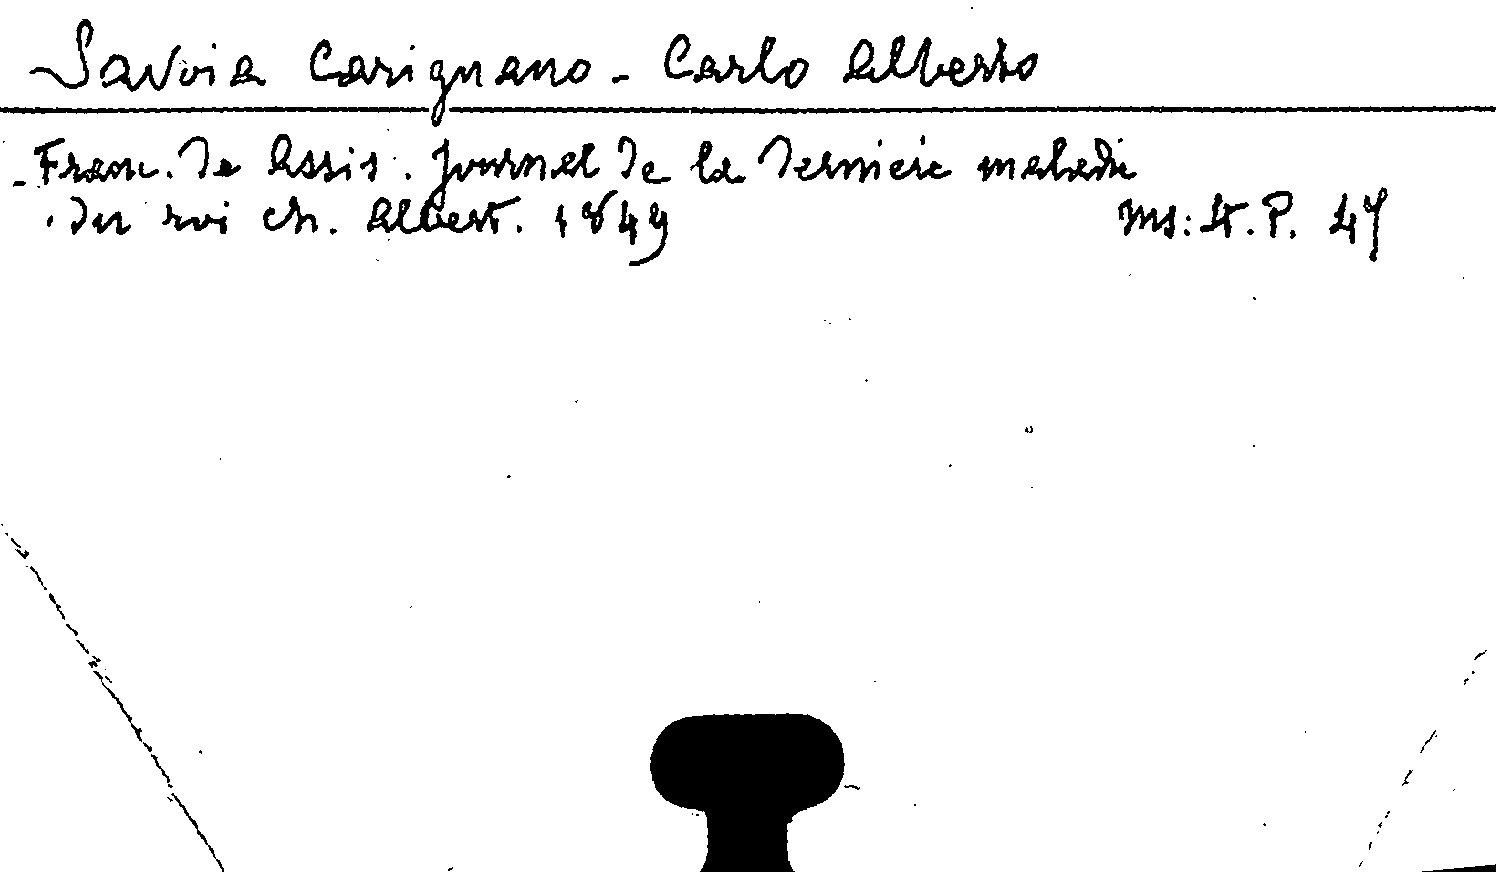 Savoia Carignano - Carlo Alberto
- Franc. de Assis. Journal de la derniere maladie
du roi Ch. Albert. 1849 Ms: St. P. 47